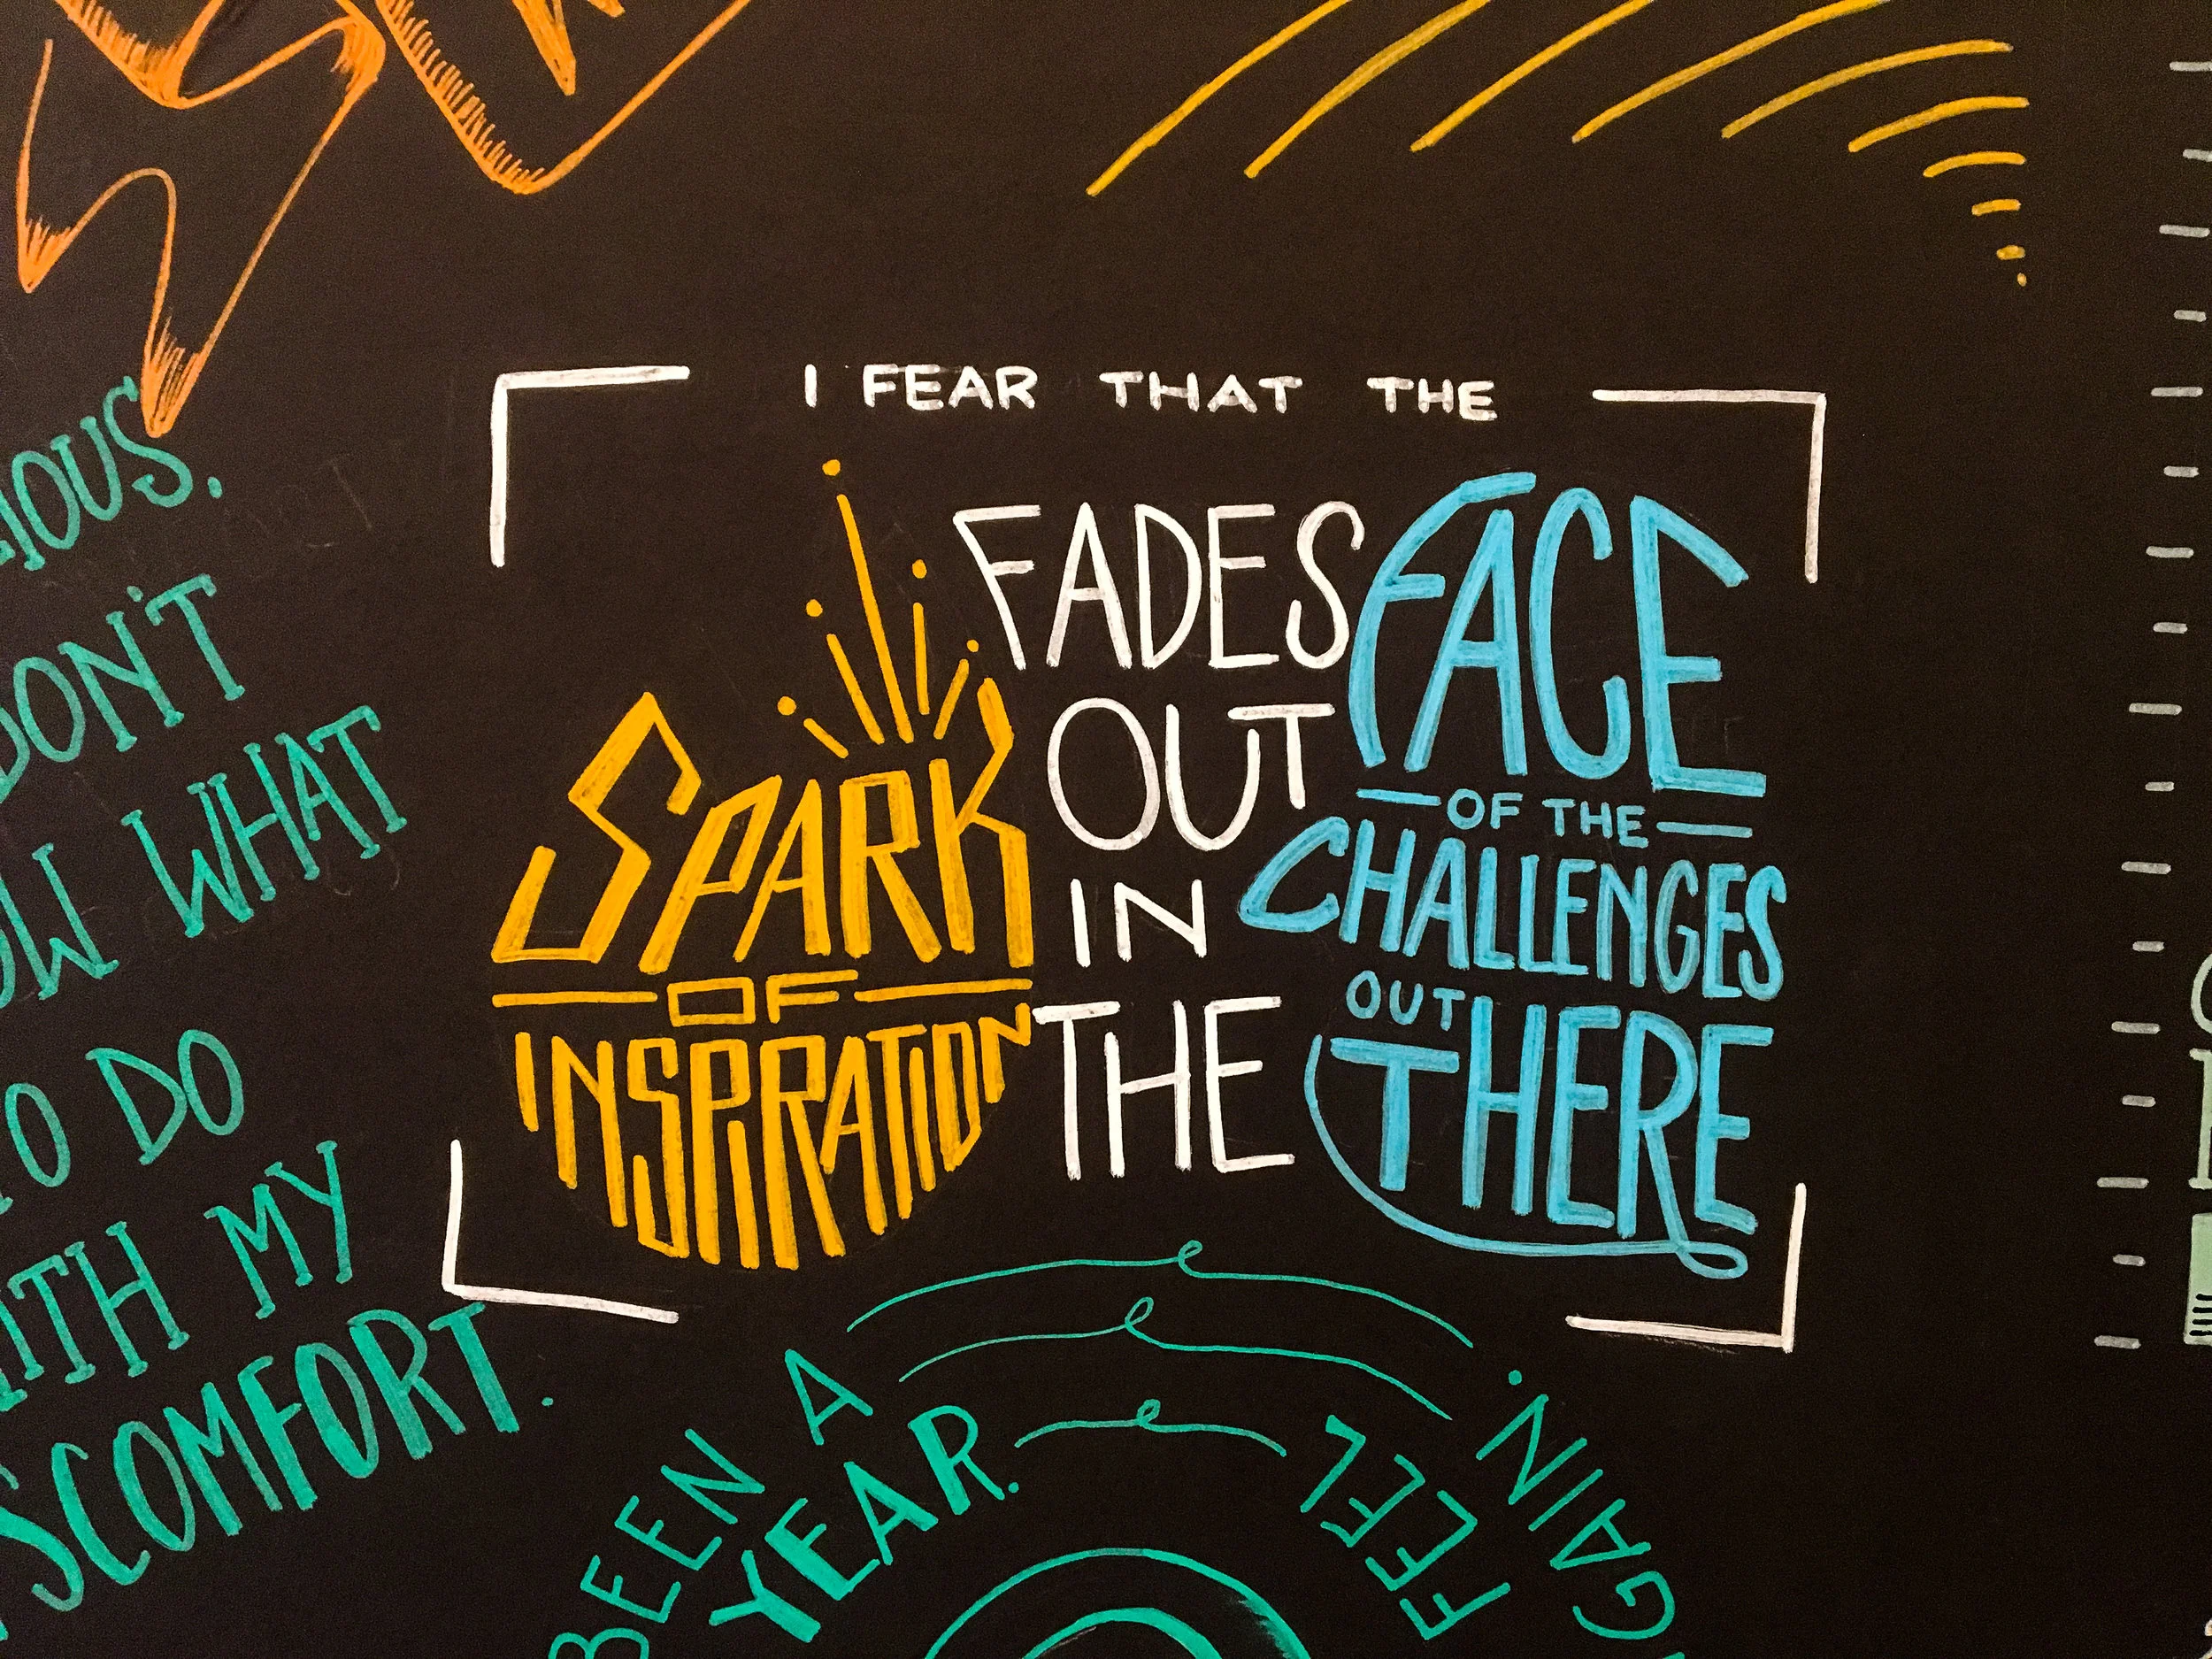 I FEAR THAT THE
SPARK
OF
INSPIRATION
FADES
OUT
IN
THE
FACE
OF THE
CHALLENGES
OUT
THERE
DON'T
WHAT
TO DO
MY
BEEN A
YEAR.
FEEL